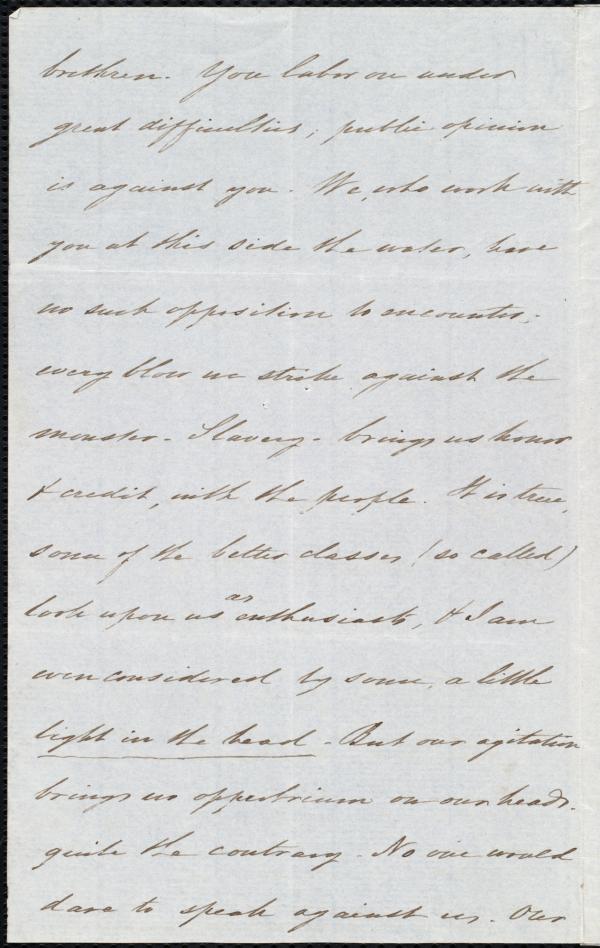 brethren. You labor on under
great difficulties; public opinion
is against you. We, who work with
you at this side the water, have
no such opposition to encounter,-
every blow we strike against the
monster - Slavery - brings us honor
& credit, with the people. It is true,
some of the better classes (so called)
look upon us as enthusiasts, & I am
even considered by some, a little
light in the head - But our agitation
brings no oppobrium on our heads.
quite the contrary. No one would
dare to speak against us. Our